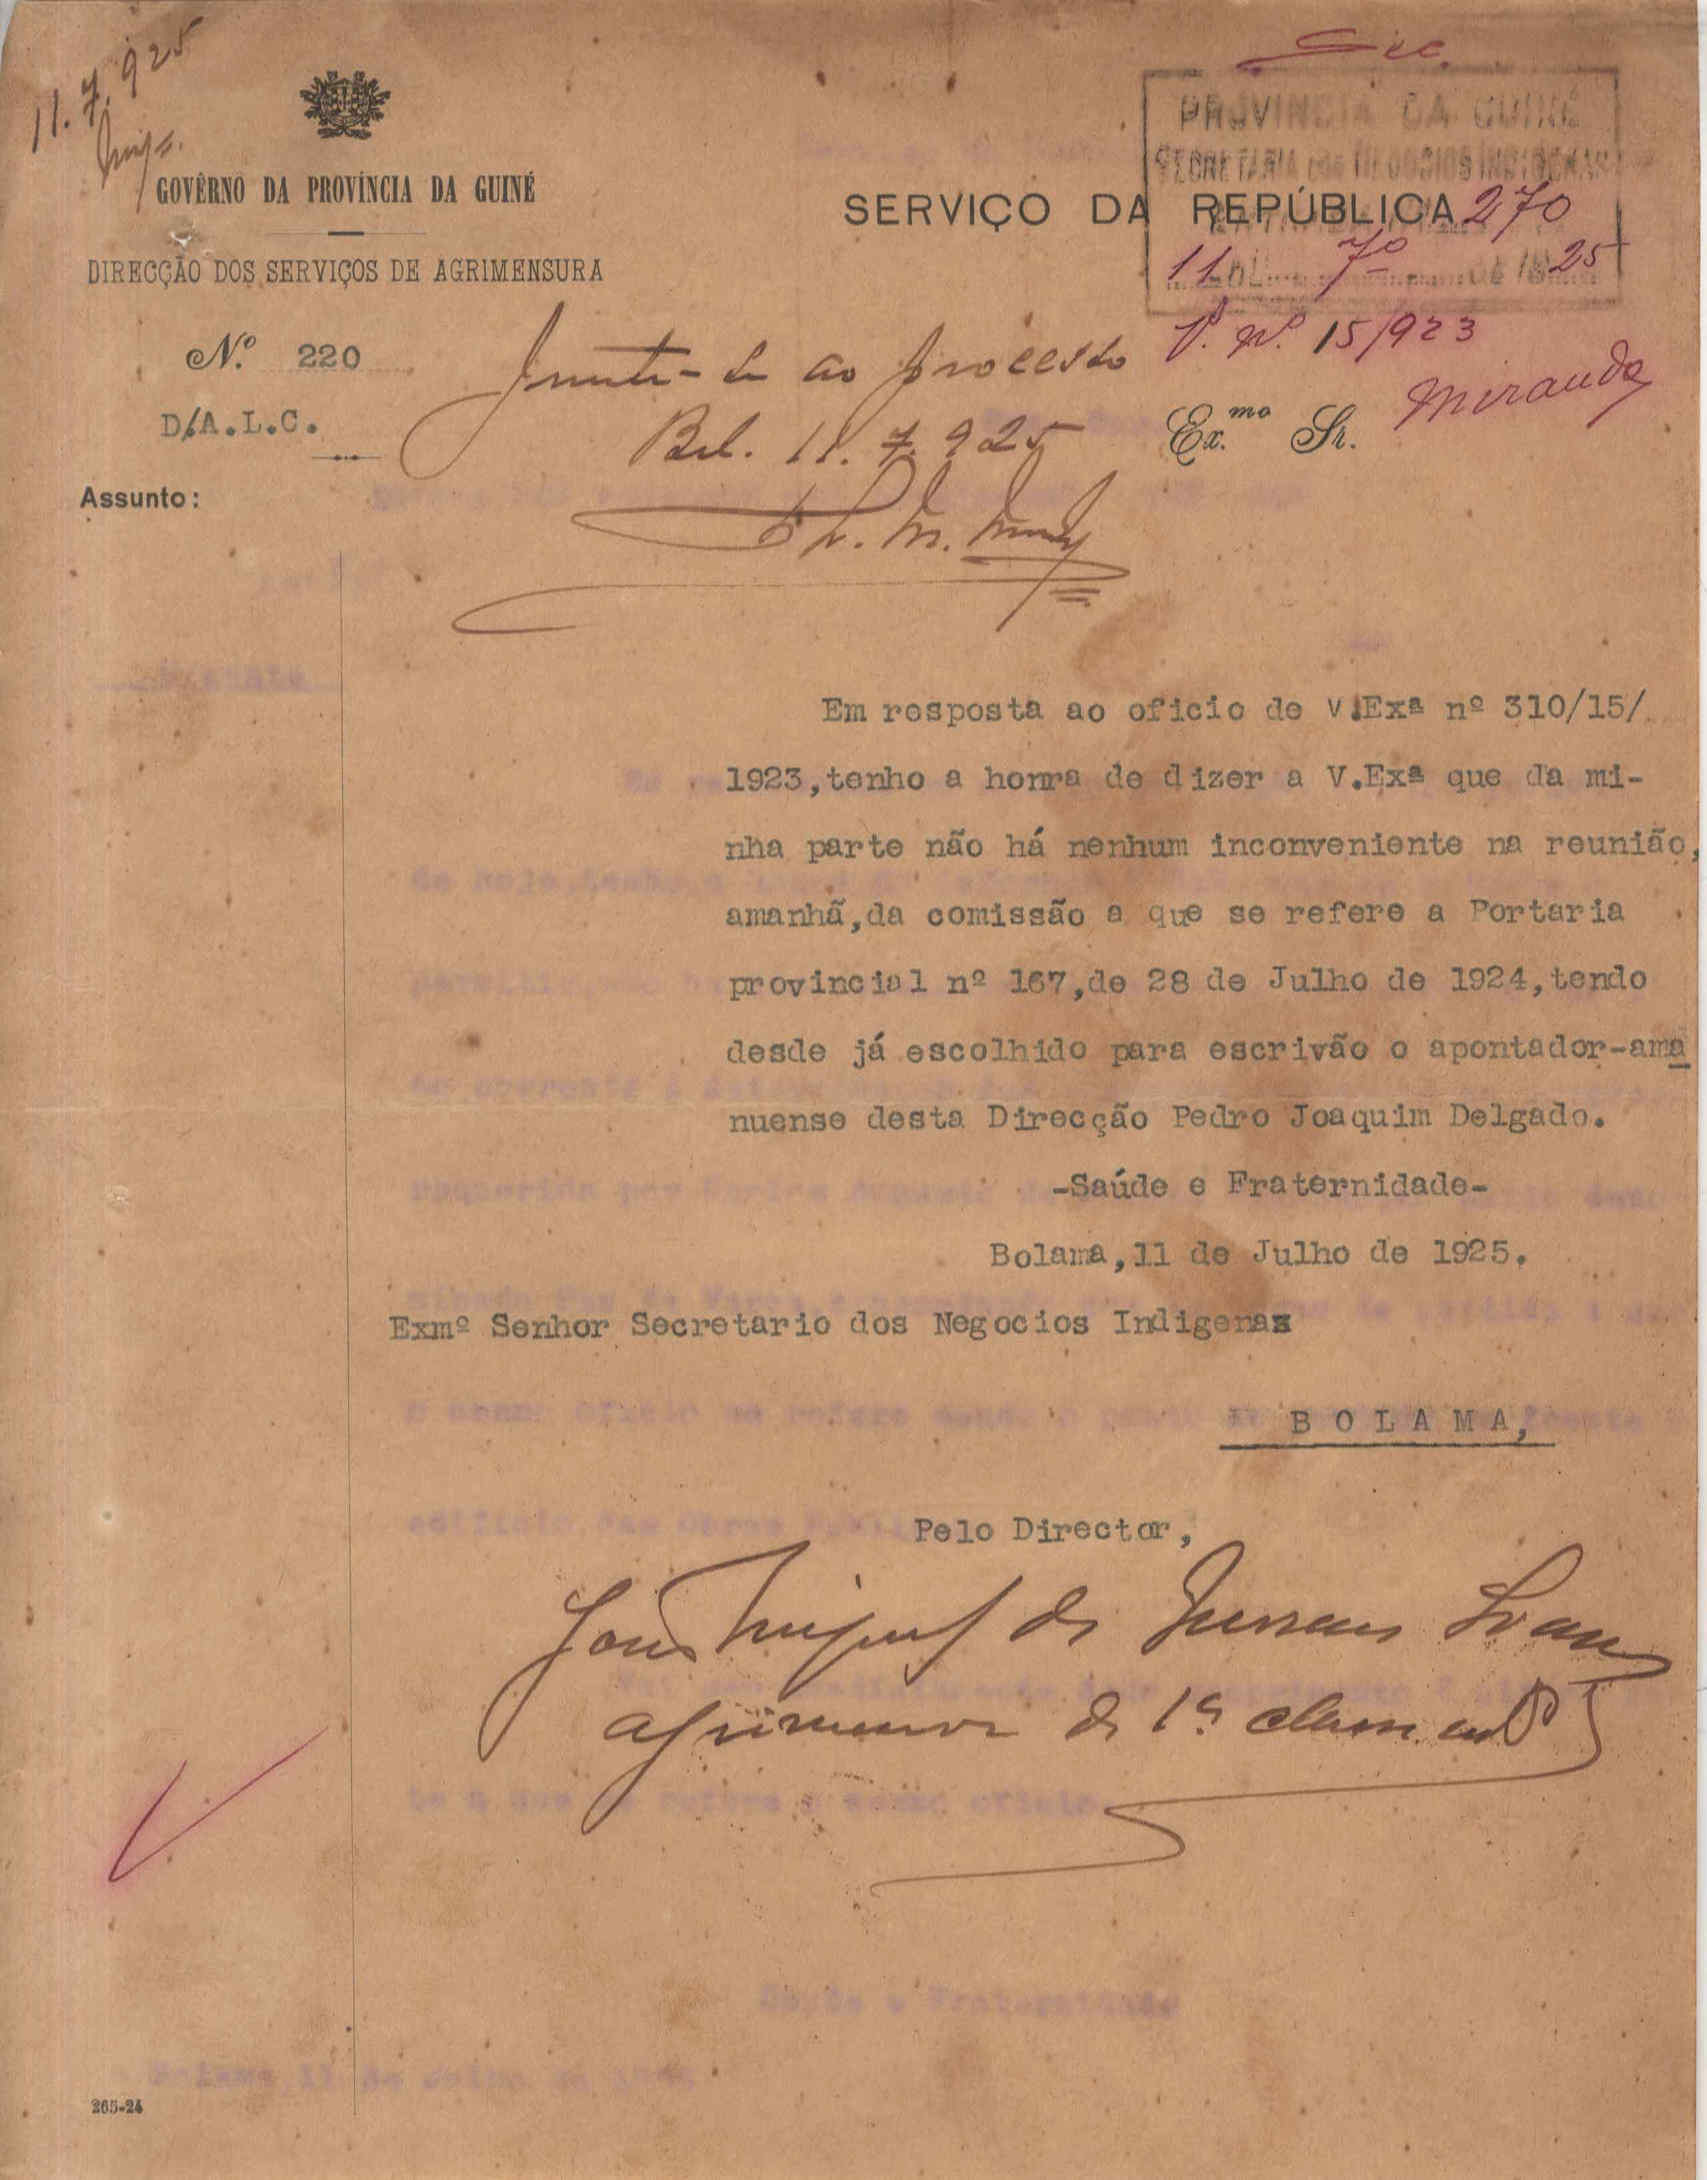 11.7.925
GOVÊRNO DA PROVÍNCIA DA GUINÉ
DIRECÇÃO DOS SERVIÇOS DE AGRIMENSURA
PROVINCIA DA GUINÉ
SECRETARIA DOS NEGOCIOS INDIGENAS
SERVIÇO DA REPÚBLICA
270
11 7º de 1925
Nº 220
D/A.L.C.
Junte-se ao processo
Bol. 11.7.925
Pº. Nº. 15/923
Miranda
Ex.mo Sr.
Assunto:
Em resposta ao oficio de V.Exª nº 310/15/
1923,tenho a honra de dizer a V.Exª que da mi-
nha parte não há nenhum inconveniente na reunião,
amanhã,da comissão a que se refere a Portaria
provincial nº 167,de 28 de Julho de 1924,tendo
desde já escolhido para escrivão o apontador-ama
nuense desta Direcção Pedro Joaquim Delgado.
-Saúde e Fraternidade-
Bolama,11 de Julho de 1925.
Exmº Senhor Secretario dos Negocios Indigenas
BOLAMA,
Pelo Director,
Miguel de
agrimensor de 1ª classe
265-24